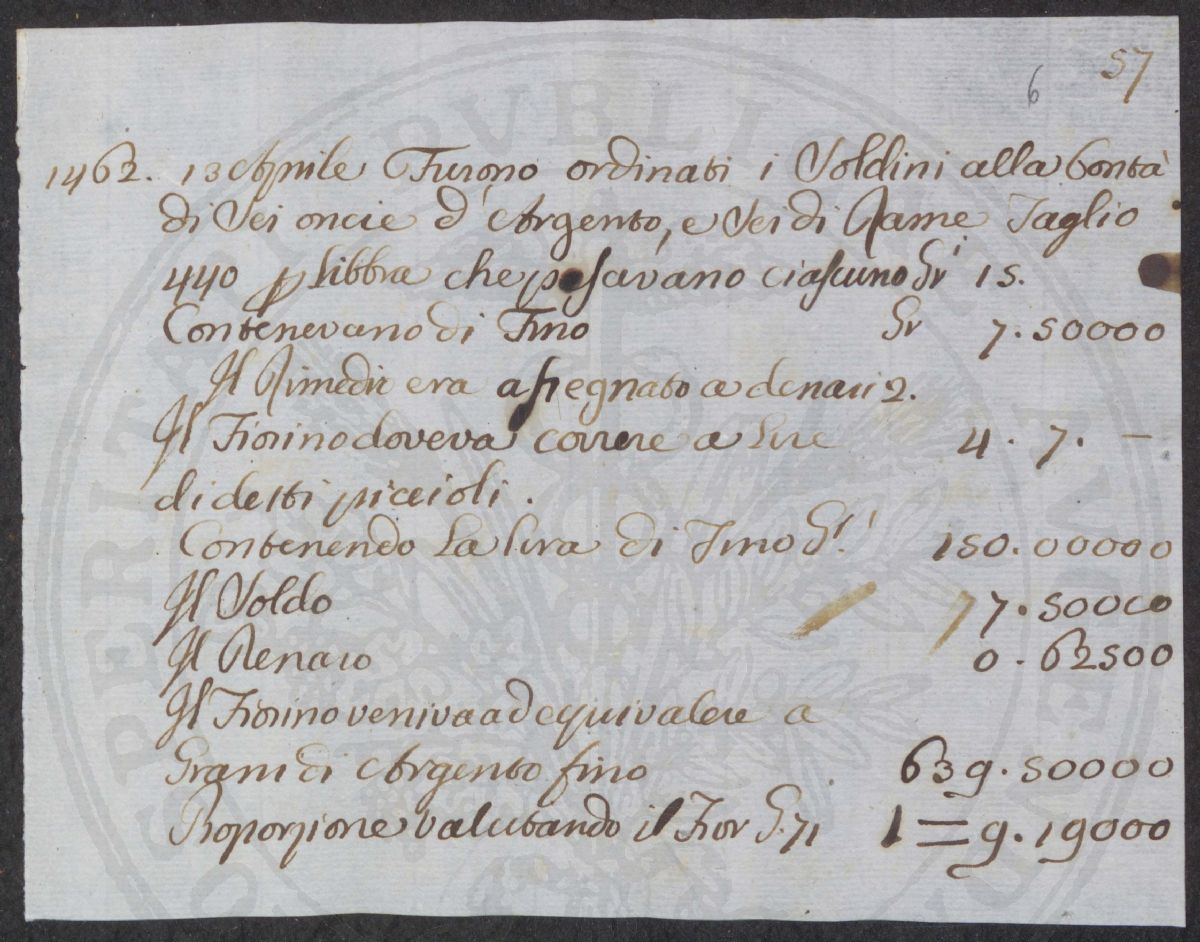 57
6
1462. 13 Aprile Furono ordinati i Soldini alla Bontà
di Sei oncie d'Argento, e Sei di Rame Taglio
440 p Libbra che pesavano ciascuno Gr.i 15.
Contenevano di Fino Gr 7.50000
Il Rimedio era assegnato a denari 2.
Il Fiorino doveva correre a Lire 4.7.—
di detti piccioli.
Contenendo La lira di Fino G.i 150.00000
Il Soldo 7.50000
Il Denaro 0.62500
Il Fiorino veniva ad equivalere a
Grani di Argento fino 639.50000
Proporzione valutando il Fior G. 71 1=9.19000